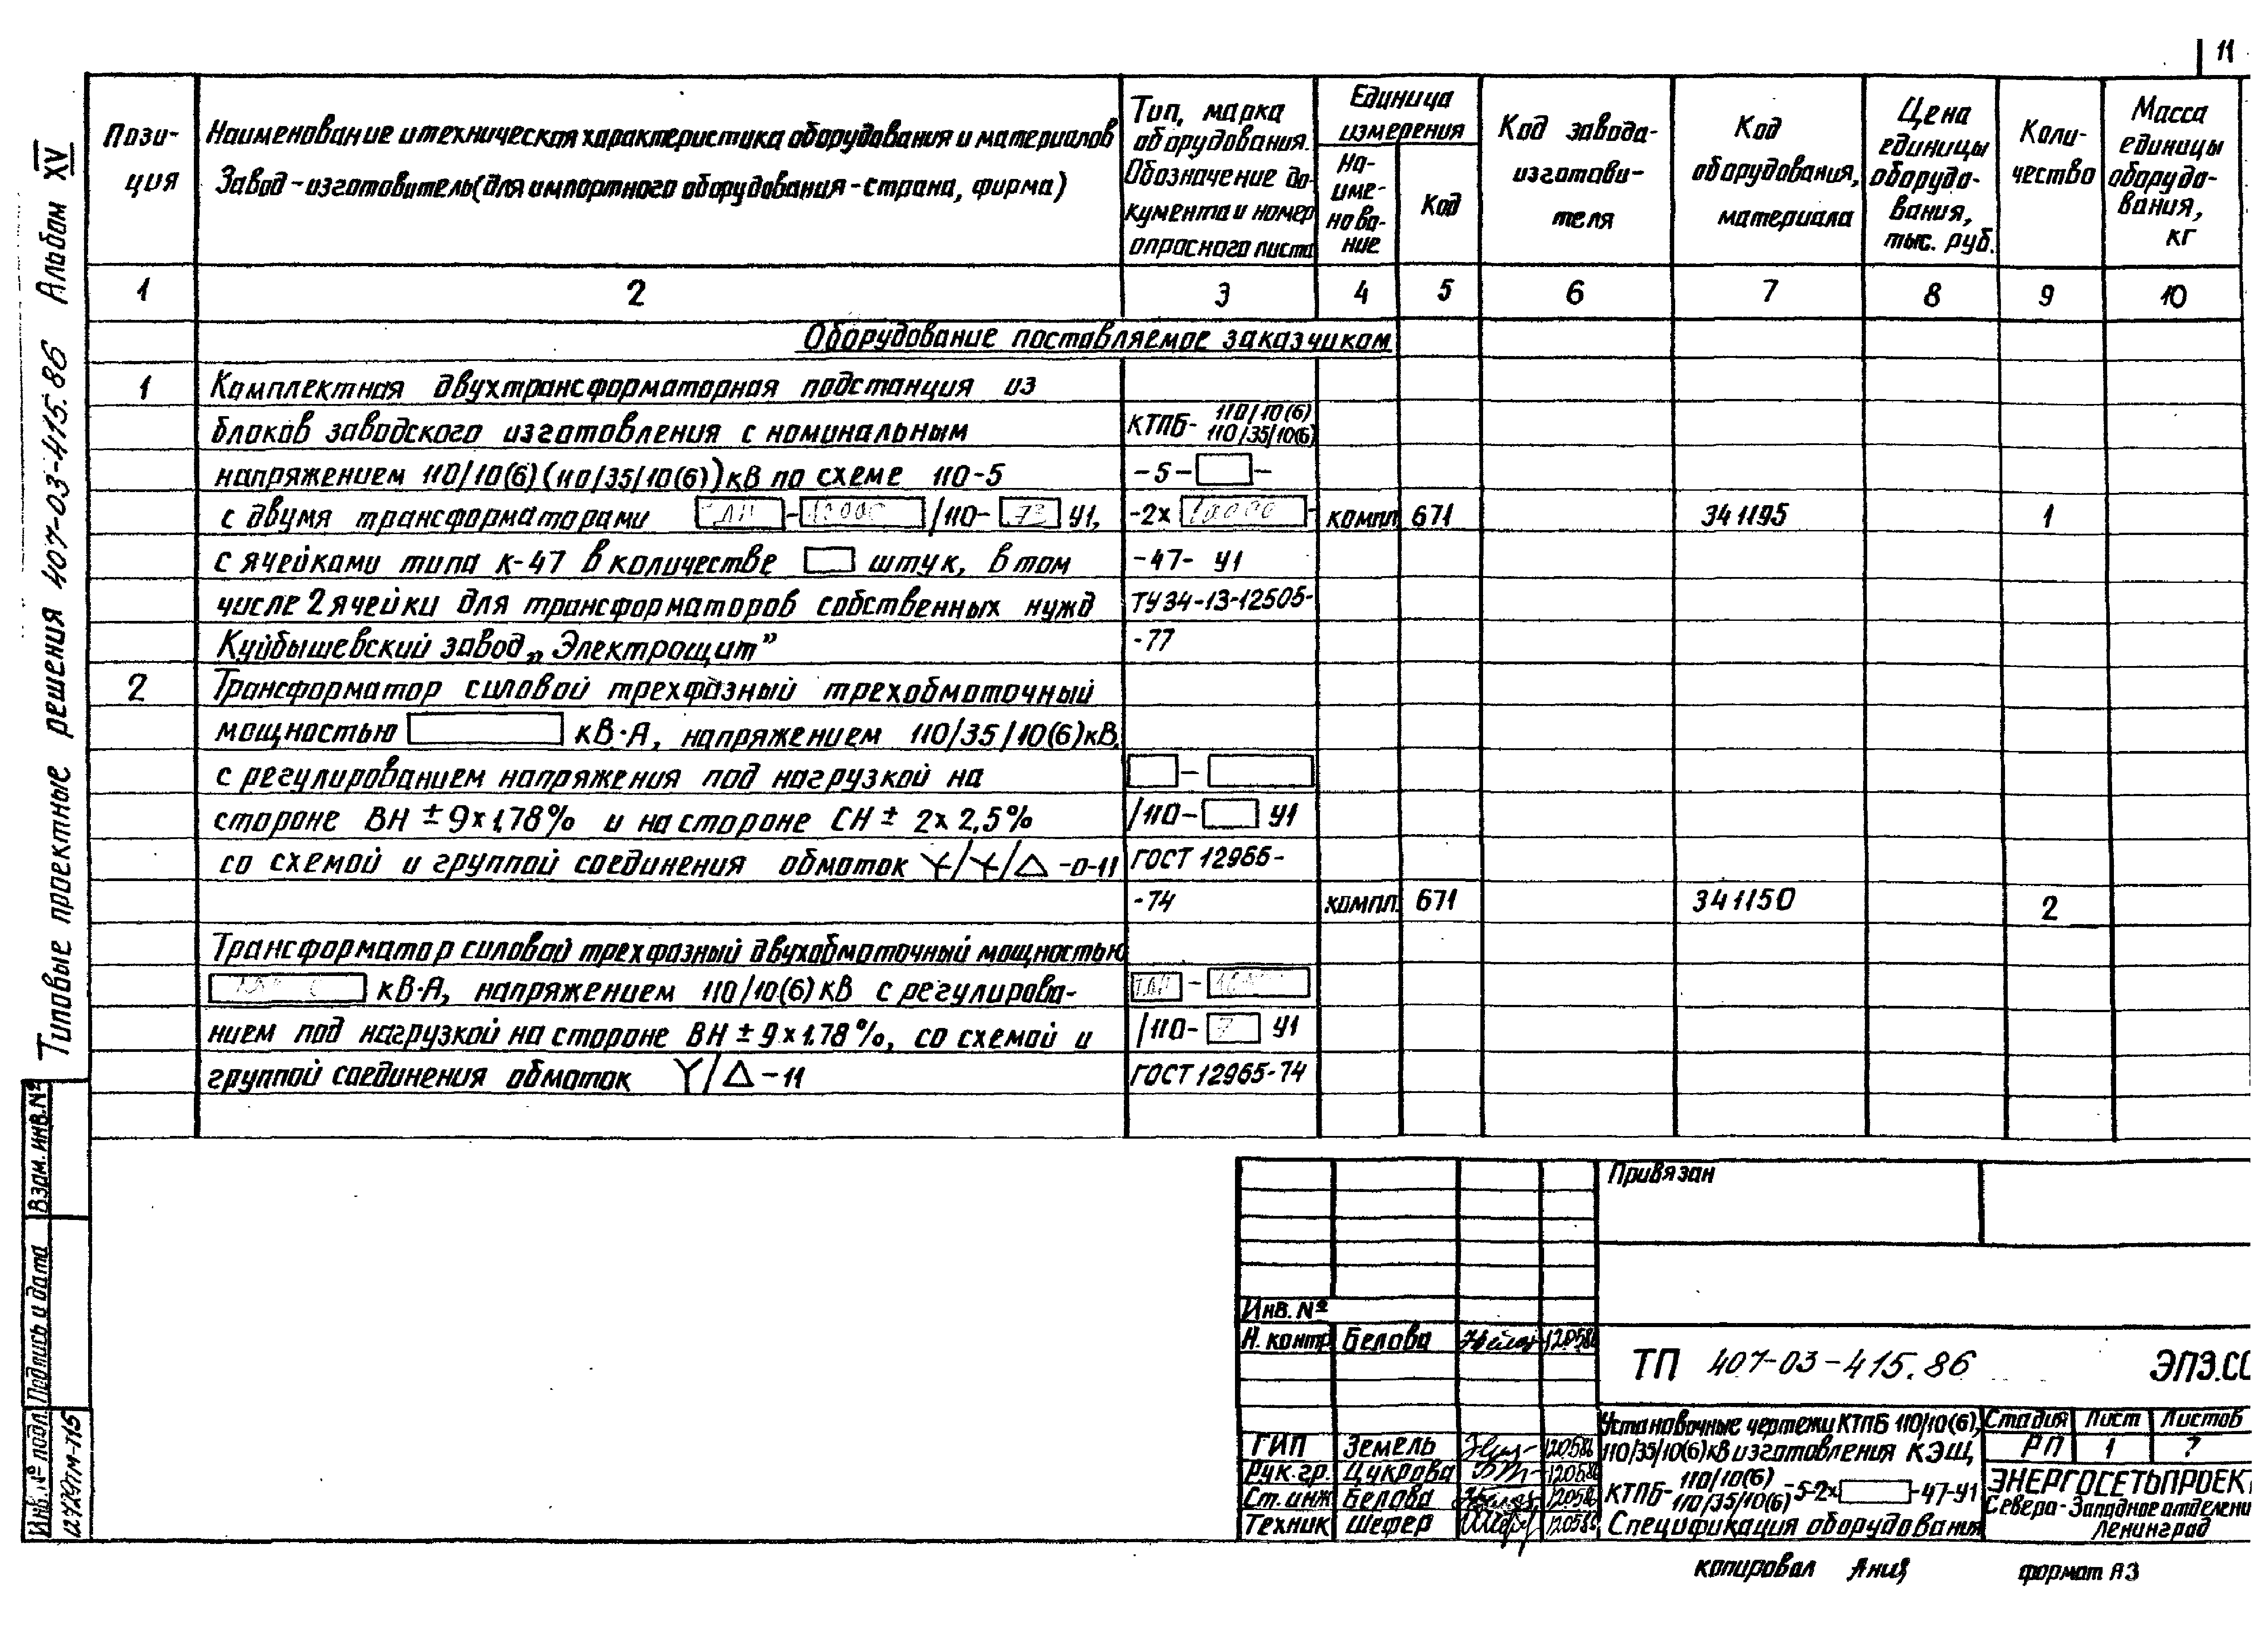 11
Типовые проектные решения 407-03-415.86 Альбом XV
Пози-
ция
Наименование и техническая характеристика оборудования и материалов
Завод-изготовитель (для импортного оборудования - страна, фирма)
Тип, марка
оборудования.
Обозначение до-
кумента и номер
опросного листа
Единица
измерения
На-
име-
нова-
ние
Код
Код завода-
изготови-
теля
Код
оборудования,
материала
Цена
единицы
оборудо-
вания,
тыс. руб.
Коли-
чество
Масса
единицы
оборудо-
вания,
кг
1 2 3 4 5 6 7 8 9 10
Оборудование поставляемое заказчиком
1 Комплектная двухтрансформаторная подстанция из
блоков заводского изготовления с номинальным КТПБ- 110/10(6) 110/35/10(6)
напряжением 110/10(6) (110/35/10(6)) кВ по схеме 110-5 -5- -
с двумя трансформаторами - /110- У1, -2х - компл 671 341195 1
с ячейками типа К-47 в количестве штук, в том -47- У1
числе 2 ячейки для трансформаторов собственных нужд ТУ34-13-12505-
Куйбышевский завод „Электрощит" -77
2 Трансформатор силовой трехфазный трехобмоточный
мощностью кВ·А, напряжением 110/35/10(6)кВ,
с регулированием напряжения под нагрузкой на -
стороне ВН ± 9х1,78% и на стороне СН ± 2х2,5% /110- У1
со схемой и группой соединения обмоток Y/Y/△-0-11 ГОСТ 12965-
-74 компл. 671 341150 2
Трансформатор силовой трехфазный двухобмоточный мощностью
кВ·А, напряжением 110/10(6) кВ с регулирова- -
нием под нагрузкой на стороне ВН ± 9х1.78%, со схемой и /110- 7 У1
группой соединения обмоток Y/△-11 ГОСТ 12965-74
Взам. инв. №
Подпись и дата
Инв. № подл.
12729тм-т15
Привязан
Инв. №
Н. контр Белова 12.05.86
ТП 407-03-415.86 ЭПЭ.СС
ГИП Земель 12.05.86
Рук. гр. Цукрова 12.05.86
Ст. инж Белова 12.05.86
Техник Шефер 12.05.86
Установочные чертежи КТПБ 110/10(6),
110/35/10(6) кВ изготовления КЭЩ,
КТПБ- 110/10(6) 110/35/10(6) -5-2х -47-У1
Спецификация оборудования
Стадия Лист Листов
РП 1 7
ЭНЕРГОСЕТЬПРОЕКТ
Северо-Западное отделени
Ленинград
копировал формат А3